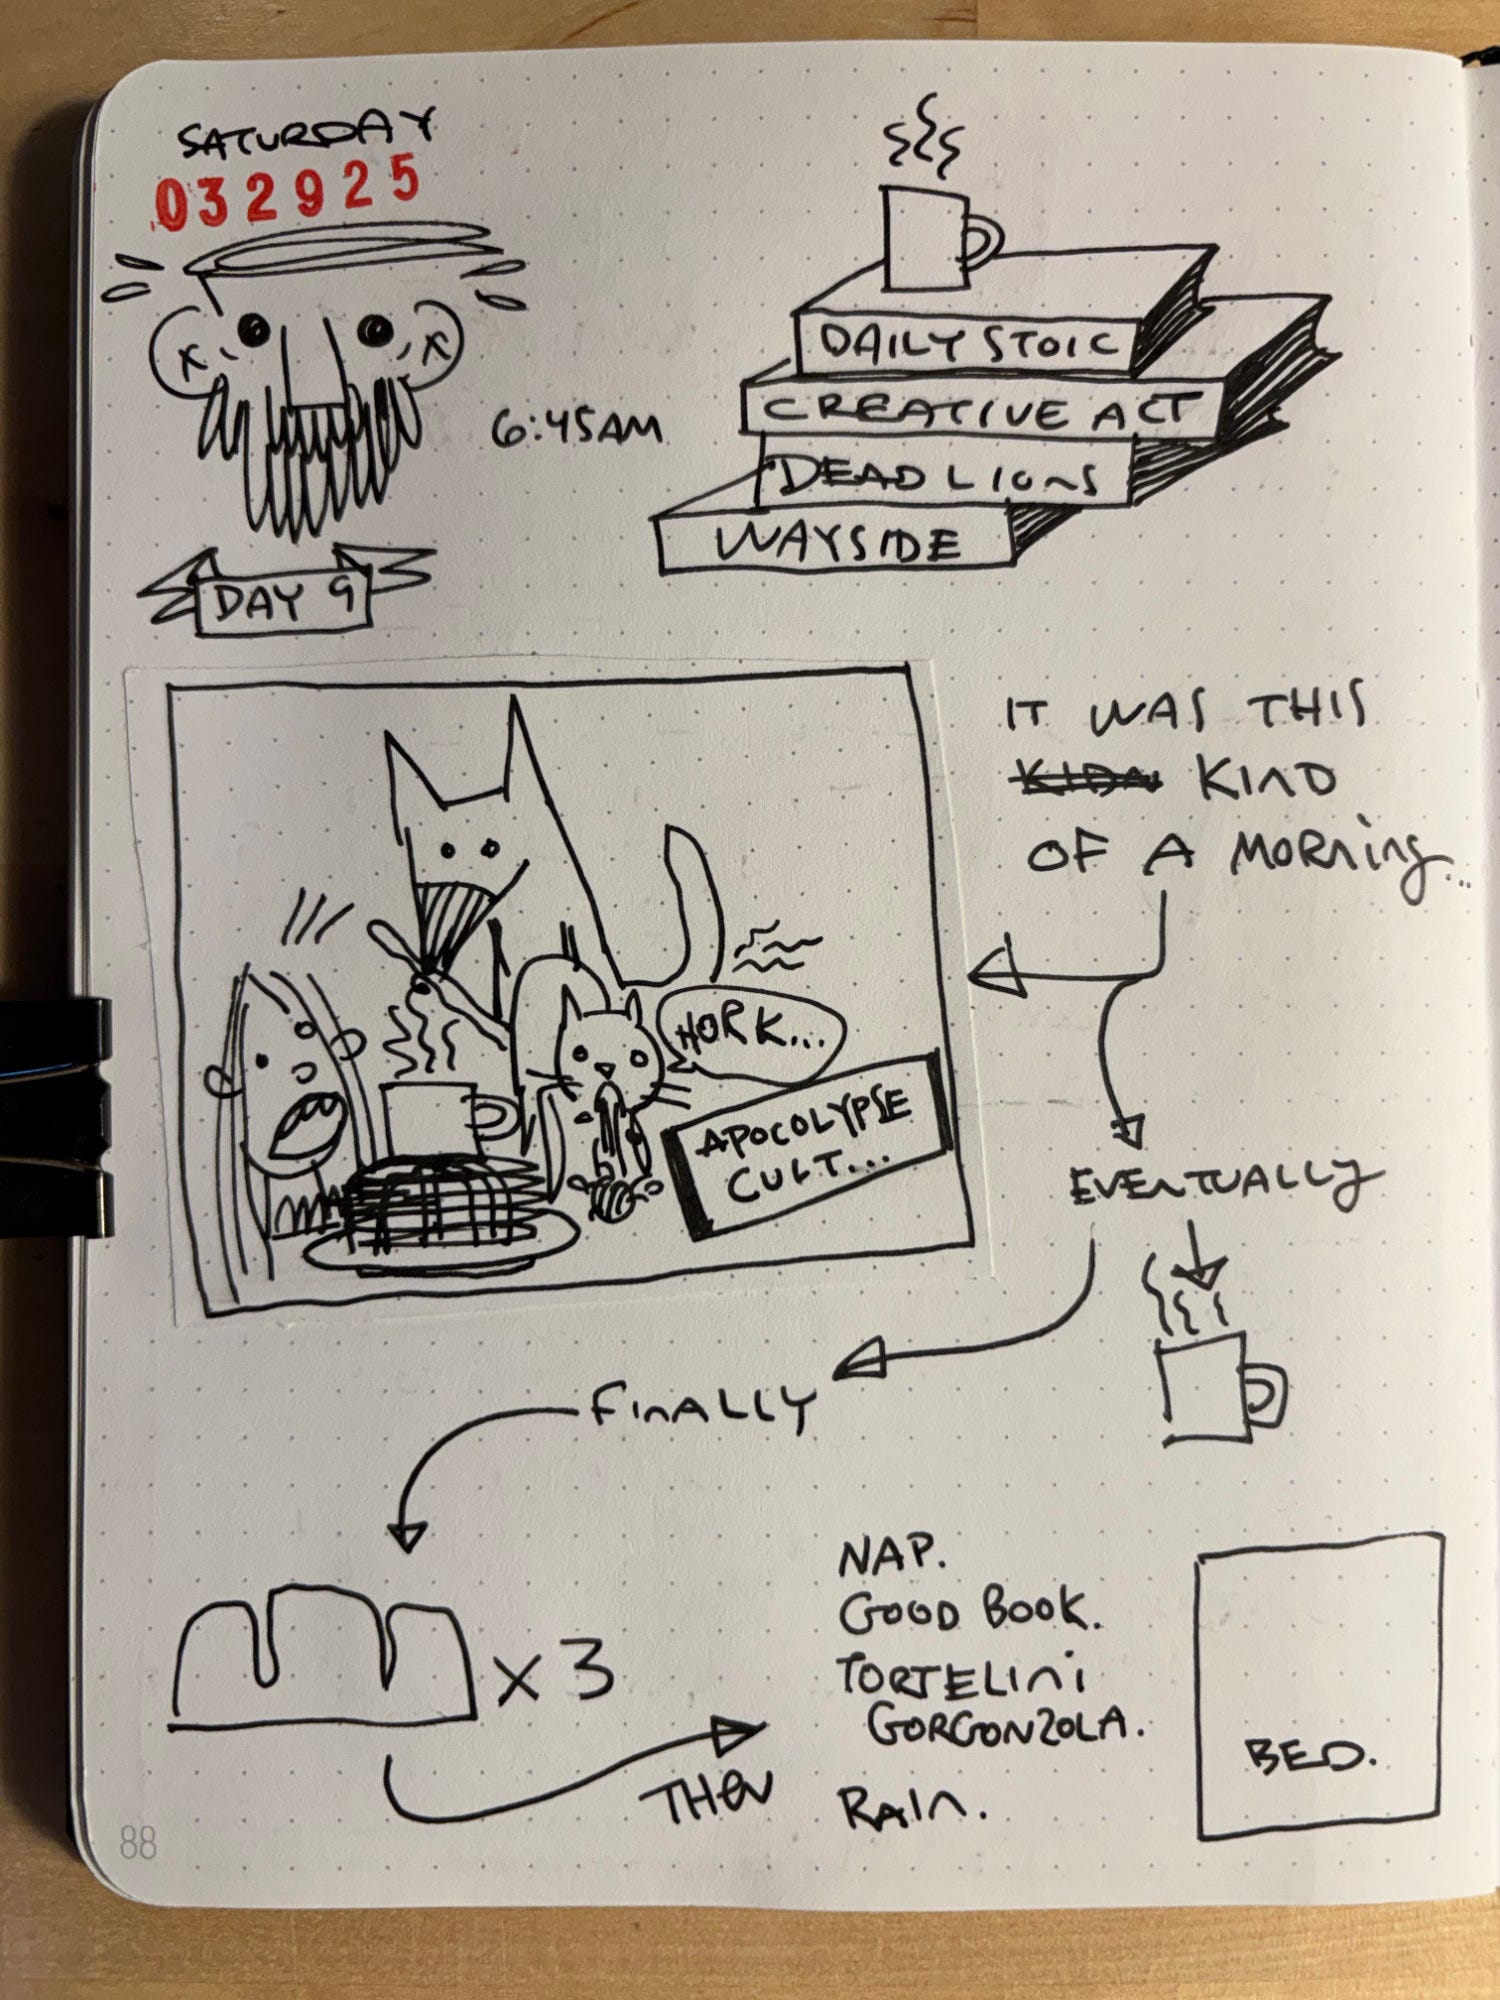 SATURDAY
032925
6:45AM
DAILY STOIC
CREATIVE ACT
DEAD LIONS
WAYSIDE
DAY 9
IT WAS THIS
KIDN KIND
OF A MORNING...
HORK...
APOCOLYPSE
CULT...
EVENTUALLY
FINALLY
X 3
THEN
NAP.
GOOD BOOK.
TORTELINI
GORGONZOLA.
RAIN.
BED.
88